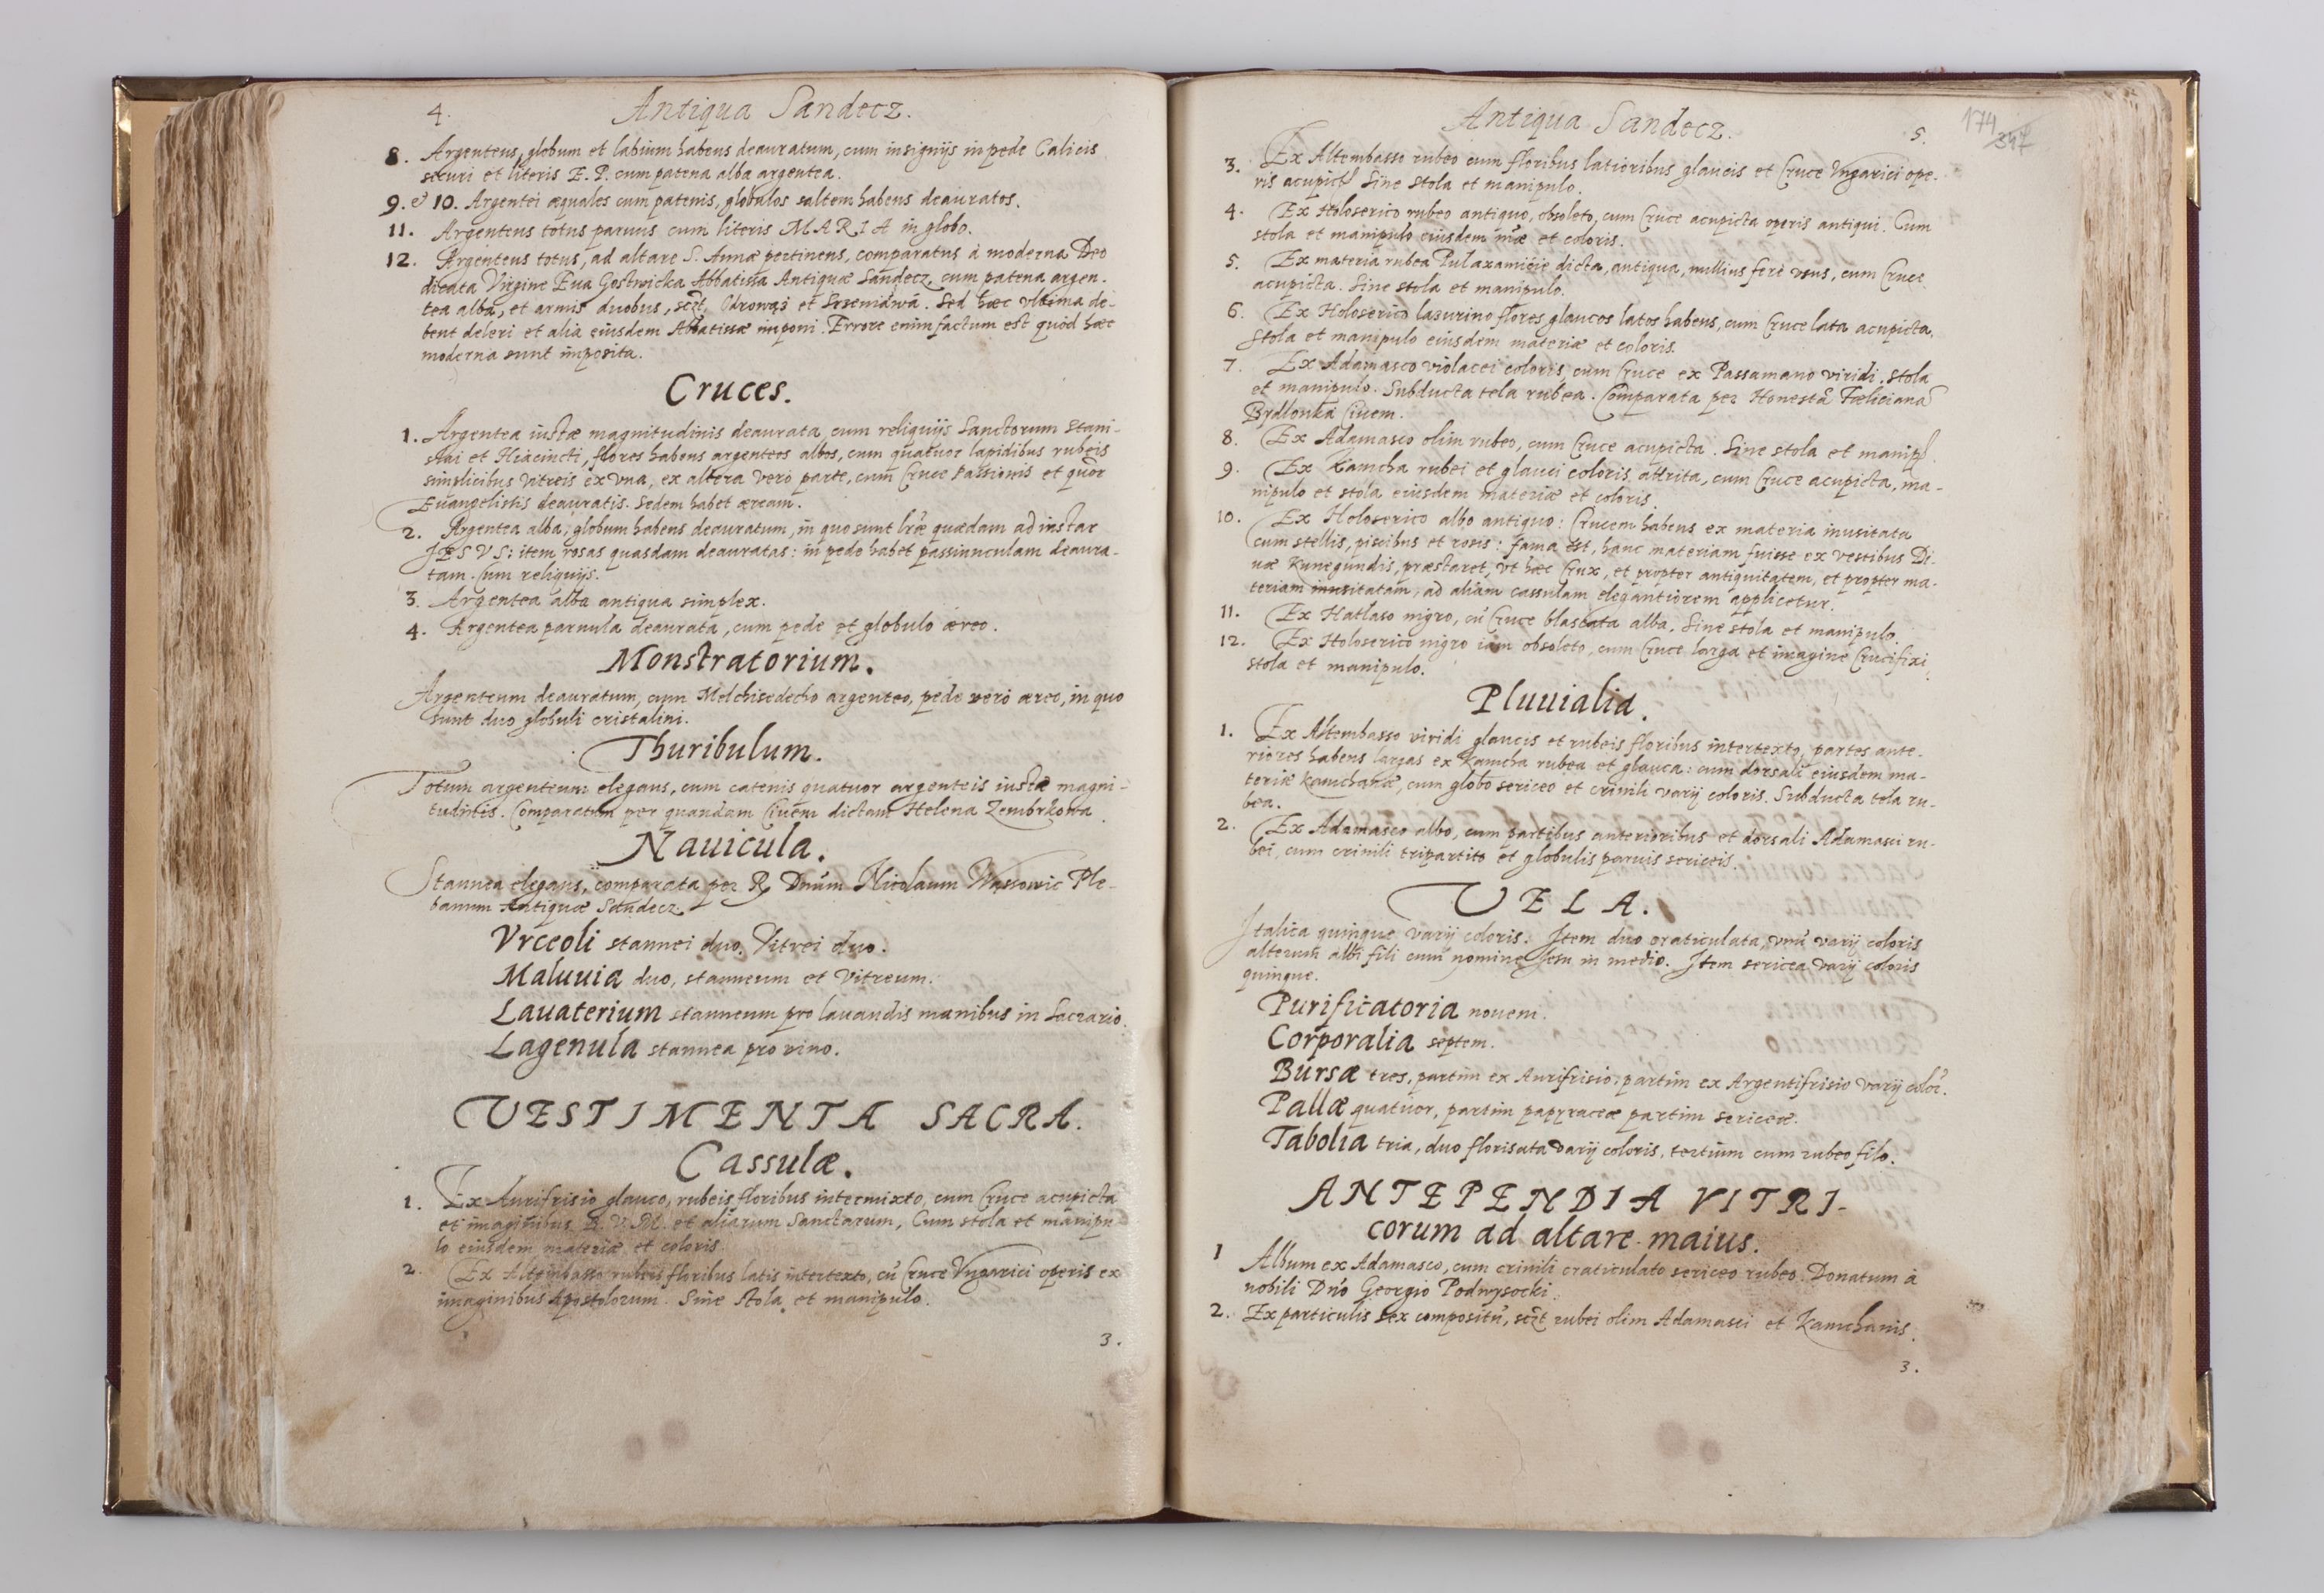 4. Antiqua Sandecz.
8. Argenteus, globum et labium habens deauratum, cum insignijs in pede Calicis
securi et literis E. P. cum patena alba argentea.
9. et 10. Argentei æquales cum patenis, globulos saltem habens deauratos.
11. Argenteus totus paruus cum literis MARIA in globo.
12. Argenteus totus, ad altare S. Annæ pertinens, comparatus à moderna Deo
dicata Virgine Eua Gostwicka Abbatissa Antiquæ Sandecz, cum patena argen-
tea alba, et armis duobus, Odrowąż et Srzeniawa. Sed hæc vltima de-
bent deleri et alia eiusdem Abbatissæ imponi. Errore enim factum est quòd hæc
moderna sunt imposita.
Cruces.
1. Argentea iustæ magnitudinis deaurata, cum reliquijs Sanctorum Stani-
slai et Hiacincti, flores habens argenteos albos, cum quatuor lapidibus rubeis
simplicibus vitreis ex vna, ex altera verò parte, cum Cruce Passionis et quor
Euangelistis deauratis. Sedem habet æream.
2. Argentea alba, globum habens deauratum, in quo sunt lræ quædam ad instar
JESVS: item rosas quasdam deauratas: in pede habet passiunculam deaura-
tam. Cum reliquijs.
3. Argentea alba antiqua simplex.
4. Argentea paruula deaurata, cum pede et globulo æreo.
Monstratorium.
Argenteum deauratum, cum Melchisedecho argenteo, pede verò æreo, in quo
sunt duo globuli cristalini.
Thuribulum.
Totum argenteum elegans, cum catenis quatuor argenteis iustæ magni-
tudinis. Comparatum per quandam Ciuem dictam Helena Zembrkowa.
Nauicula.
Stannea elegans, comparata per R. Dnum Nicolaum Wąssowic Ple-
banum Antiquæ Sandecz.
Vrceoli stannei duo. Vitrei duo.
Maluuia duo, stanneum et Vitreum.
Lauaterium stanneum pro lauandis manibus in Sacrario.
Lagenula stannea pro vino.
VESTIMENTA SACRA.
Cassulæ.
1. Ex Aurifrisio glauco, rubeis floribus intermixto, cum Cruce acupicta
et imaginibus B. V. M. et aliarum Sanctarum, Cum stola et manipu-
lo eiusdem materiæ et coloris.
2. Ex Altembasso rubeis floribus latis intertexto, cũ Cruce Vngarici operis ex
imaginibus Apostolorum. Sine stola et manipulo.
3.
Antiqua Sandecz. 5.
174
347
3. Ex Altembasso rubeo cum floribus latioribus glaucis et Cruce Vngarici ope-
ris acupict. Sine stola et manipulo.
4. Ex Holoserico rubeo antiquo, obsoleto, cum Cruce acupicta operis antiqui. Cum
stola et manipulo eiusdem mæ et coloris.
5. Ex materia rubea Pulaxamicie dicta, antiqua, nullius ferè vsus, cum Cruce
acupicta. Sine stola et manipulo.
6. Ex Holoserico lazurino flores glaucos latos habens, cum Cruce lata acupicta,
Stola et manipulo eiusdem materiæ et coloris.
7. Ex Adamasco violacei coloris, cum Cruce ex Passamano viridi. Stola
et manipulo. Subducta tela rubea. Comparata per Honestã Fœlicianã
Brdlonka Ciuem.
8. Ex Adamasco olim rubeo, cum Cruce acupicta. Sine stola et manipl.
9. Ex Kamcha rubei et glauci coloris, attrita, cum Cruce acupicta, ma-
nipulo et stola eiusdem materiæ et coloris.
10. Ex Holoserico albo antiquo: Crucem habens ex materia inusitata
cum stellis, piscibus et rosis: fama est, hanc materiam fuisse ex vestibus Di-
uæ Kunegundis, præstaret, vt hæc Crux, et propter antiquitatem, et propter ma-
teriam inusitatam, ad aliam cassulam elegantiorem applicetur.
11. Ex Hatlaso nigro, cũ Cruce blascata alba. Sine stola et manipulo.
12. Ex Holoserico nigro iam obsoleto, cum Cruce larga et imagine Crucifixi,
stola et manipulo.
Pluuialia.
1. Ex Altembasso viridi glaucis et rubeis floribus intertexto, partes ante-
riores habens largas ex Kamcha rubea et glauca: cum dorsali eiusdem ma-
teriæ kamchanæ, cum globo sericeo et crinili varij coloris. Subducta tela ru-
bea.
2. Ex Adamasco albo, cum partibus anterioribus et dorsali Adamasci ru-
bei, cum crinili tripartito et globulis paruis sericeis.
VELA.
Italica quinque varij coloris. Item duo craticulata, vnũ varij coloris
alterum albi fili cum nomine Jesu in medio. Item sericea varij coloris
quinque.
Purificatoria nouem.
Corporalia septem.
Bursæ tres, partim ex Aurifrisio, partim ex Argentifrisio varij color.
Pallæ quatuor, partim papyraceæ partim sericeæ.
Tabolia tria, duo florisata varij coloris, tertium cum rubeo filo.
ANTEPENDIA VITRI-
corum ad altare maius.
1 Album ex Adamasco, cum crinili craticulato sericeo rubeo. Donatum à
nobili Dno Georgio Podwysocki.
2. Ex particulis sex compositũ, rubei olim Adamasci et Kamchanis.
3.